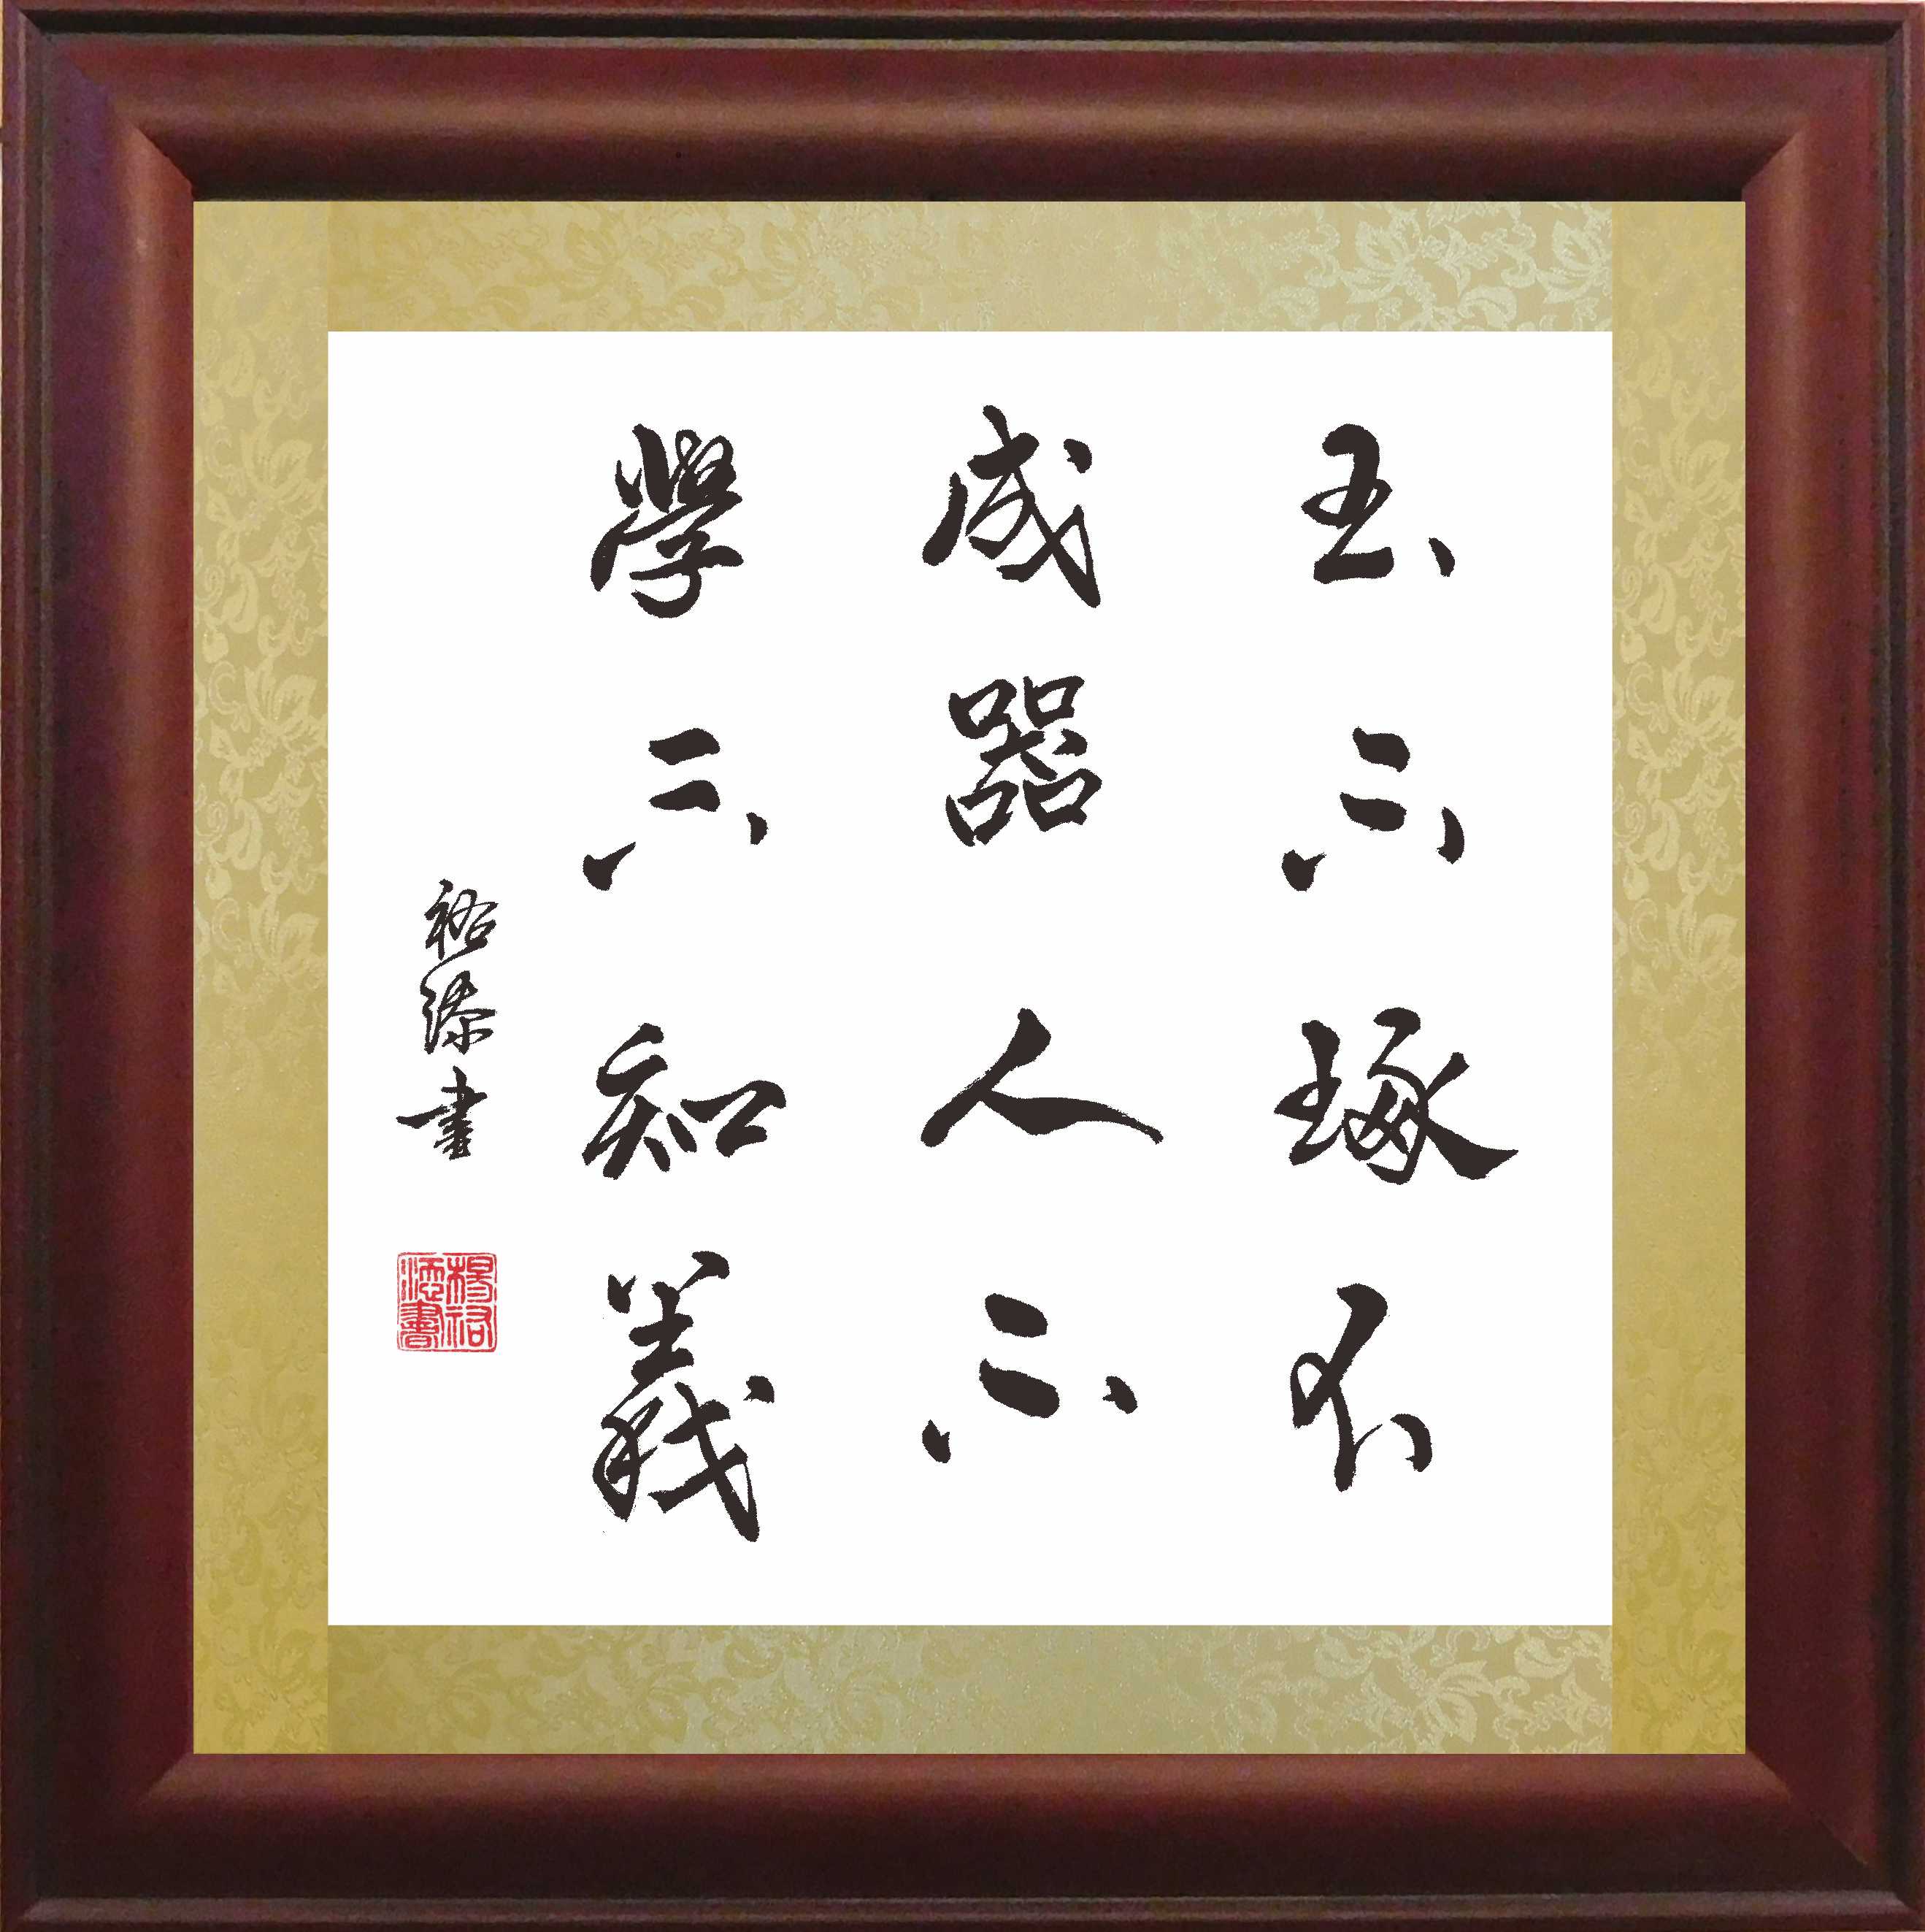 玉不琢不
成器人不
學不知義
裕添書
楊裕
添書